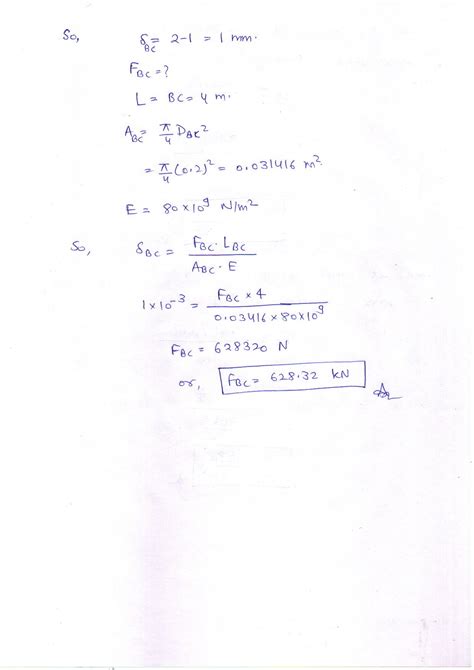 So, δBC = 2-1 = 1 mm.
FBC = ?
L = BC = 4 m.
ABC = π/4 DBC²
= π/4 (0.2)² = 0.031416 m²
E = 80×10⁹ N/m²
So, δBC = FBC · LBC / ABC · E
1×10⁻³ = FBC × 4 / 0.03416 × 80×10⁹
FBC = 628320 N
or, FBC = 628.32 kN